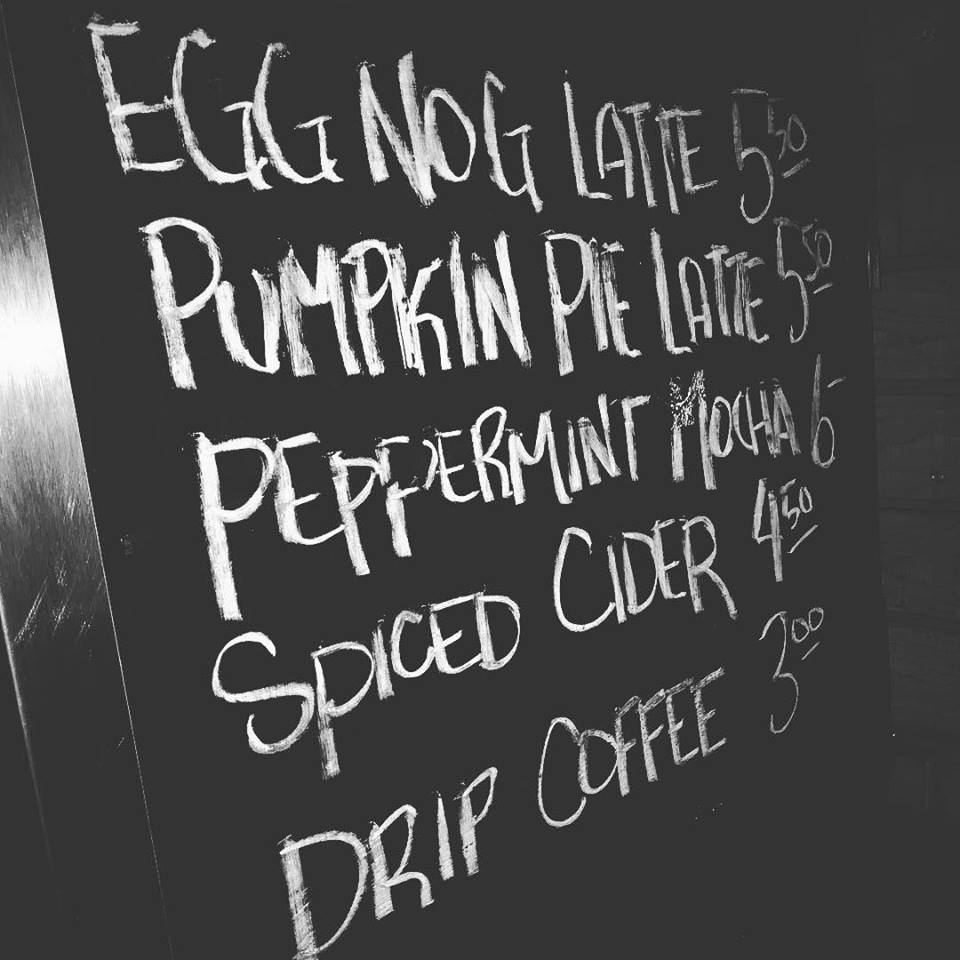 EGG NOG LATTE 5 50
PUMPKIN PIE LATTE 5 50
PEPPERMINT MOCHA 6-
SPICED CIDER 4 50
DRIP COFFEE 3 00